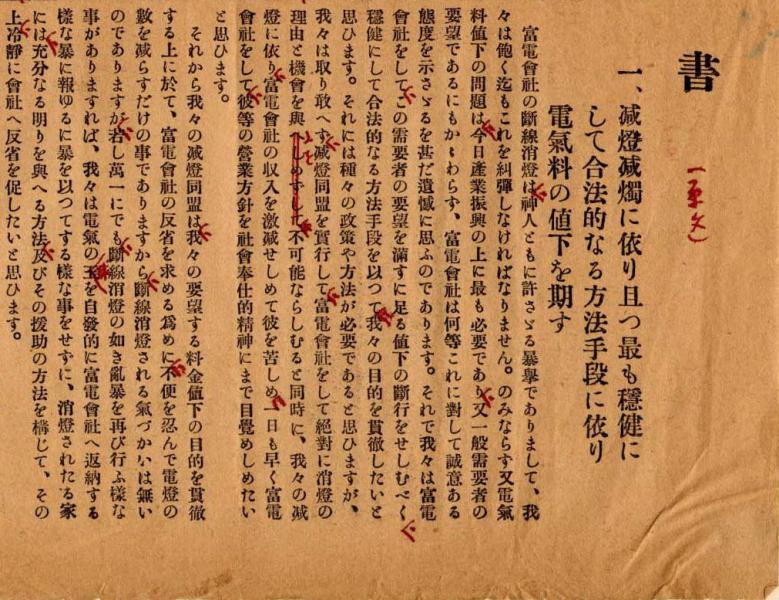 書
一、減燈減燭に依り且つ最も穩健に
して合法的なる方法手段に依り
電氣料の値下を期す
富電會社の斷線消燈は神人ともに許さゞる暴擧でありまして、我
々は飽く迄もこれを糾彈しなければなりません。のみならす又電氣
料値下の問題は今日產業振興の上に最も必要であり又一般需要者の
要望であるにもかゝわらす、富電會社は何等これに對して誠意ある
態度を示さゞるを甚だ遺憾に思ふのであります。それで我々は富電
會社をしてこの需要者の要望を滿すに足る値下の斷行をせしむべく
穩健にして合法的なる方法手段を以つて我々の目的を貫徹したいと
思ひます。それには種々の政策や方法が必要であると思ひますが、
我々は取り敢へす減燈同盟を實行して富電會社をして絕對に消燈の
理由と機會を與へしめずして不可能ならしむると同時に、我々の減
燈に依り富電會社の收入を激減せしめて彼を苦しめ一日も早く富電
會社をして彼等の營業方針を社會奉仕的精神にまで目覺めしめたい
と思ひます。
それから我々の減燈同盟は我々の要望する料金値下の目的を貫徹
する上に於て、富電會社の反省を求める爲めに不便を忍んで電燈の
數を減らすだけの事でありますから斷線消燈される氣づかいは無い
のでありますが若し萬一にでも斷線消燈の如き亂暴を再び行ふ樣な
事がありますれば、我々は電氣の玉を自發的に富電會社へ返納する
樣な暴に報ゆるに暴を以つてする樣な事をせずに、消燈されたる家
には充分なる明りを與へる方法及びその援助の方法を構じて、その
上冷靜に會社へ反省を促したいと思ひます。